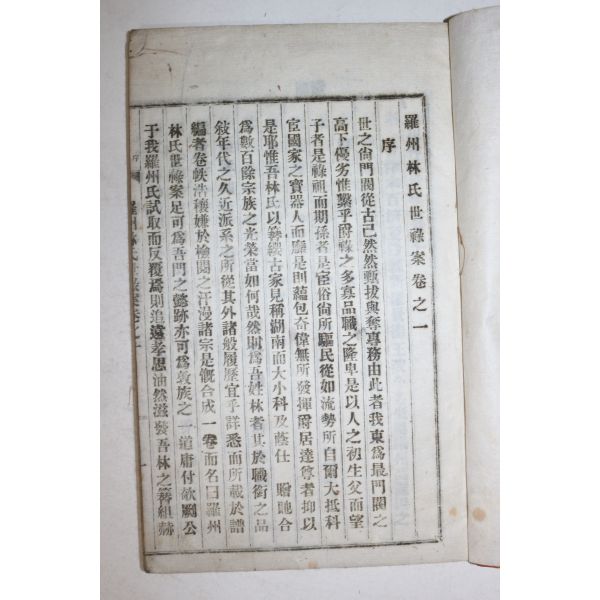 羅州林氏世祿案卷之一
序
世之尙門閥從古已然然甄拔與奪專務由此者我東爲最門閥之
高下優劣惟繫乎爵祿之多寡品職之隆卑是以人之初生父而望
子者是祿祖而期孫者是宦俗尙所驅民從如流勢所自爾大抵科
宦國家之寶器人而廳是則蘊包奇偉無所發揮爵居達尊者抑以
是耶惟吾林氏以簪纓古家見稱湖南而大小科及蔭仕 贈貤合
爲數百餘宗族之光榮當如何哉然則爲吾姓林者其於職銜之品
敍年代之久近派系之所從其外諸般履歷宜乎詳悉而所載於譜
編者卷帙浩穰嫌於檢閱之汗漫諸宗是慨合成一卷而名曰羅州
林氏世祿案足可爲吾門之懿跡亦可爲敦族之一道庸付剞劂公
于我羅州氏試取而反覆焉則追遠孝思油然滋發吾林之簪組赫
序 羅州林氏世祿案卷之一 一